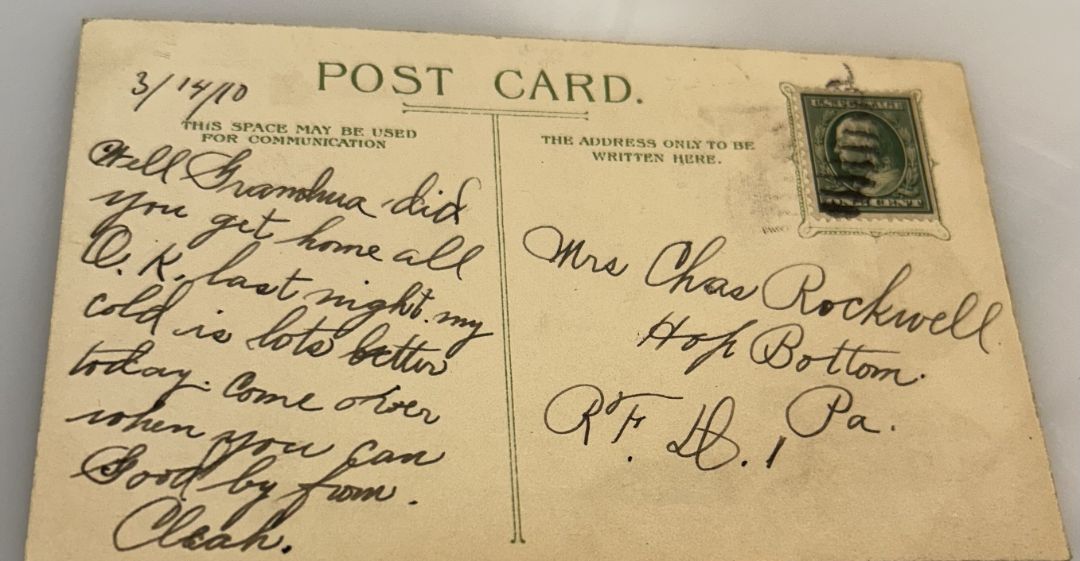 POST CARD.
3/14/10
THIS SPACE MAY BE USED
FOR COMMUNICATION
Well Grandma did
you get home all
O.K. last night. my
cold is lots better
today. Come over
when you can
Good by from.
Cleah.
THE ADDRESS ONLY TO BE
WRITTEN HERE.
Mrs Chas Rockwell
Hop Bottom.
Pa.
R.F.D. 1